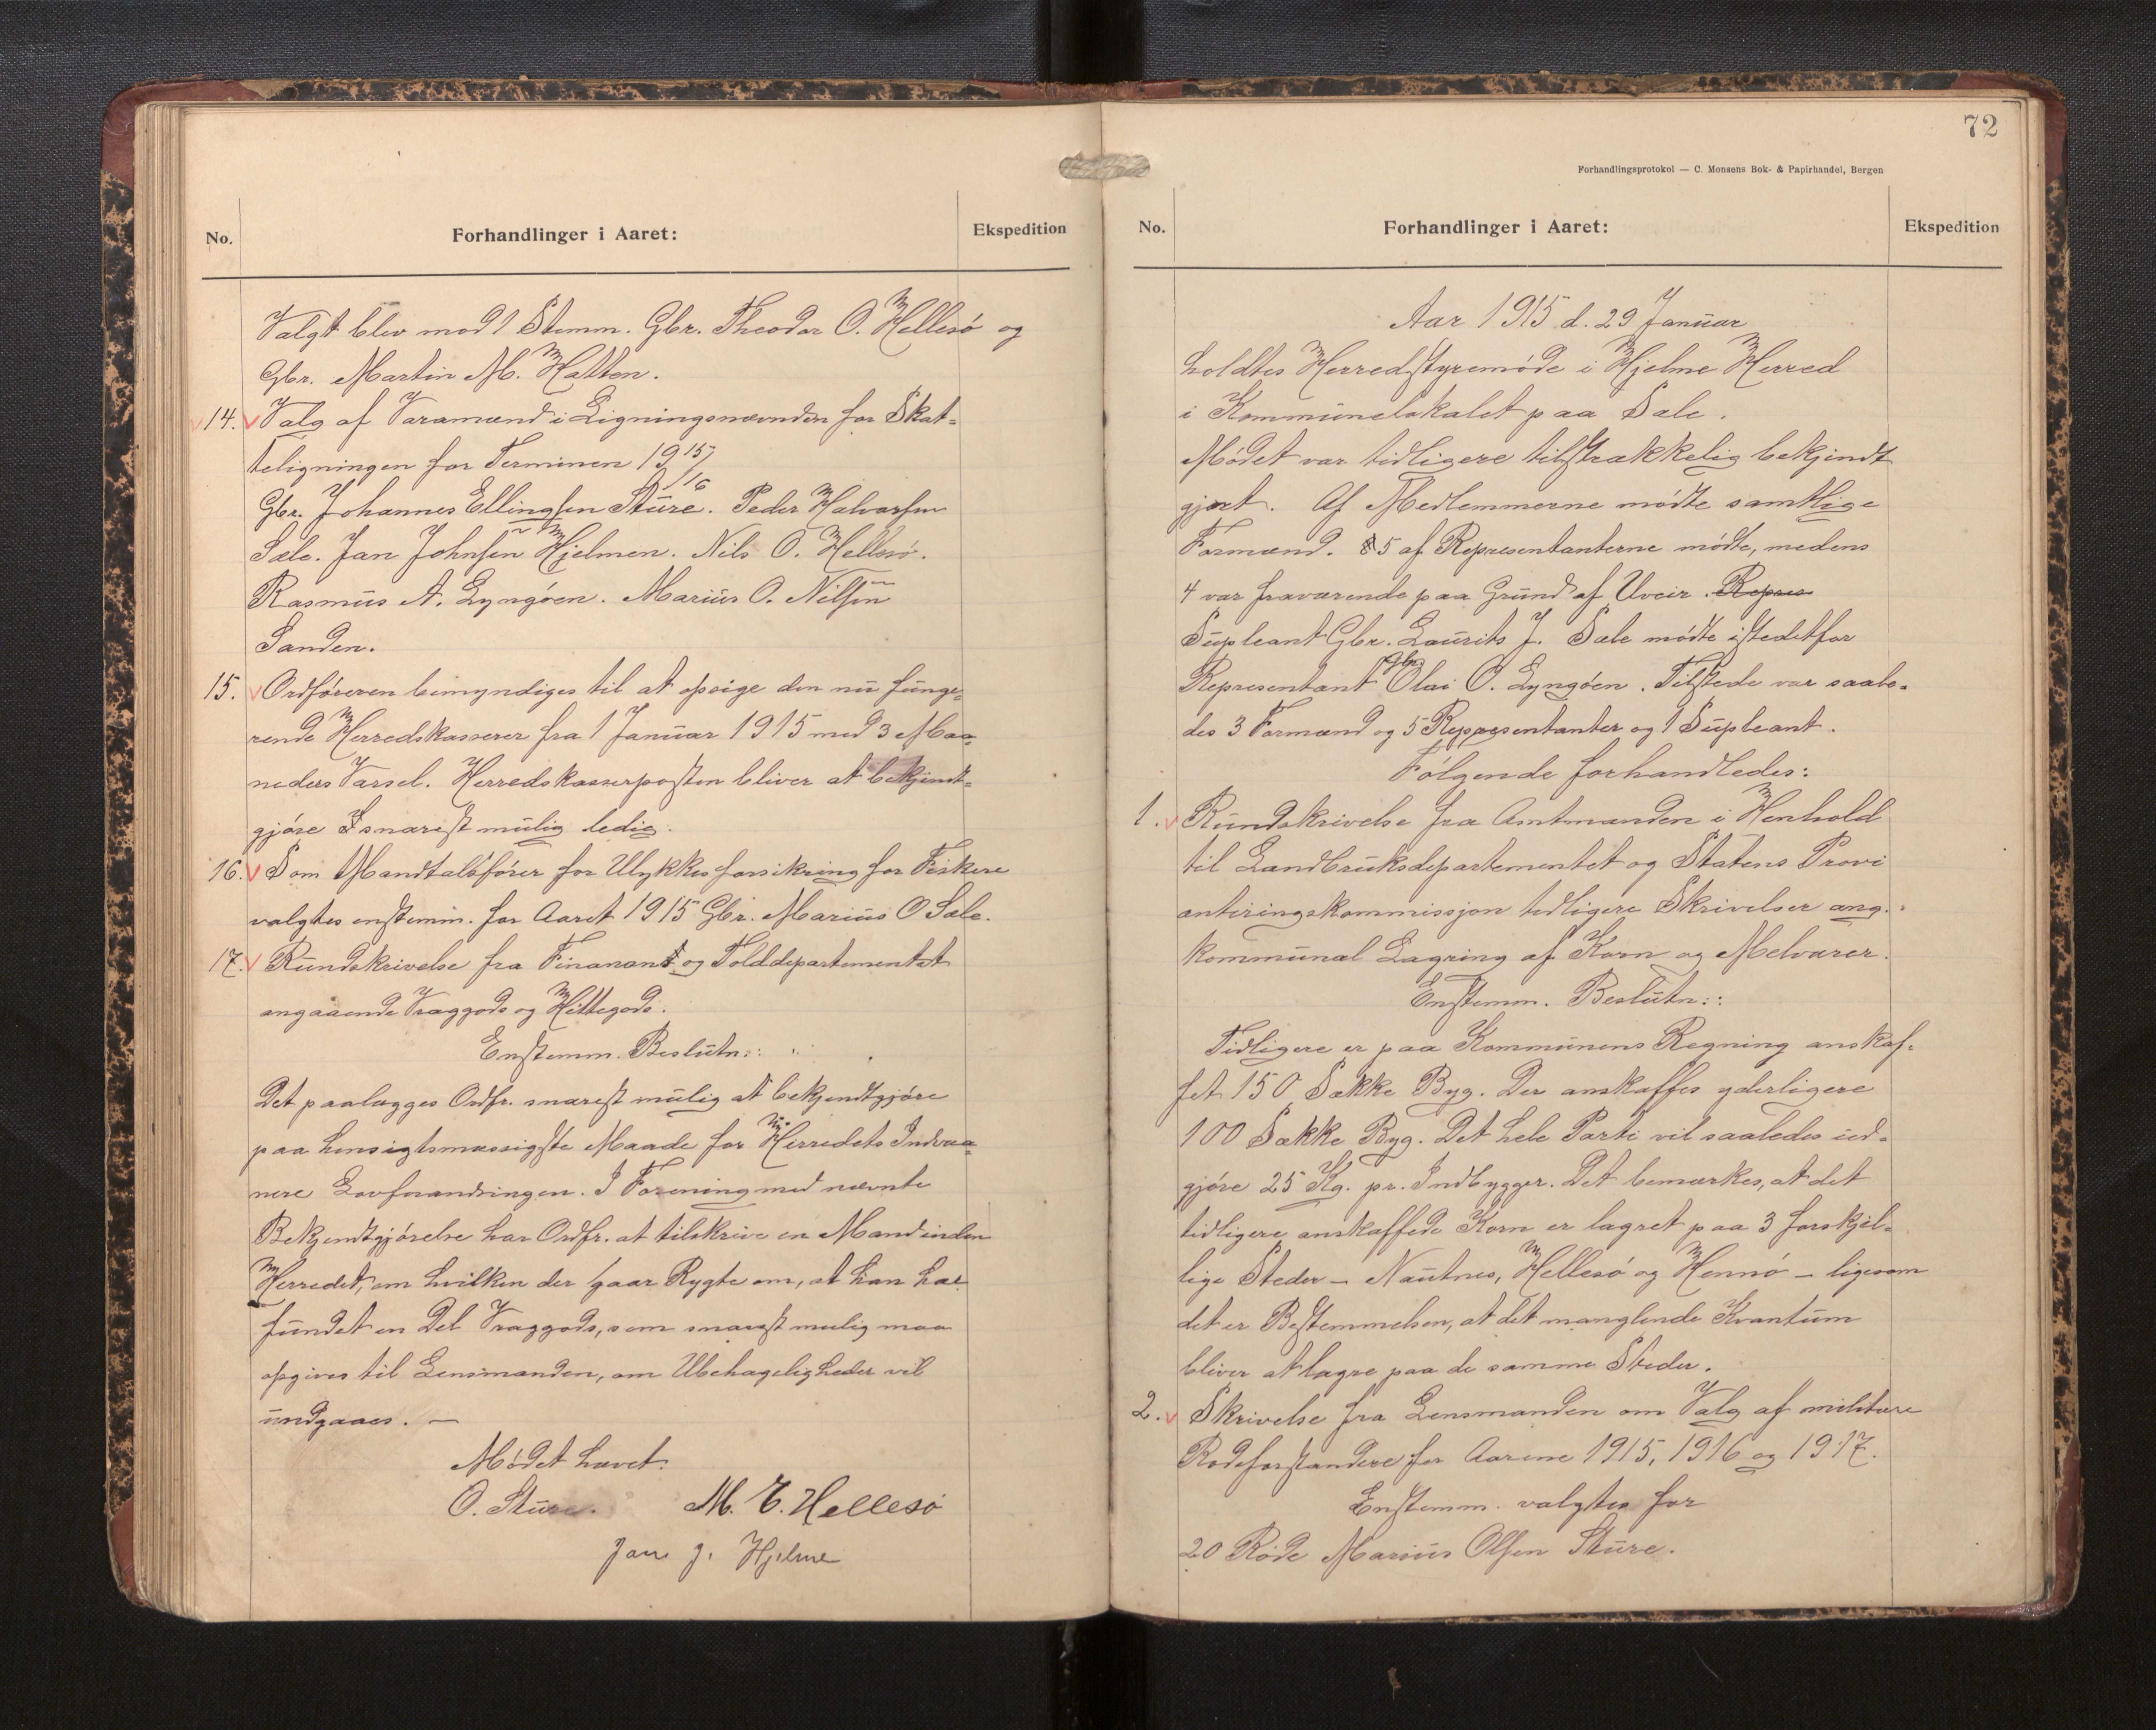 No.
Forhandlinger i Aaret:
Ekspedition
Valgt blev mod 1 Stemm. Gbr. Theodor O. Hellesö og
Gbr. Martin M. Hatten.
14. Valg af Varamænd i Ligningsnævnden for Skat-
teligningen for Terminen 1915/16
Gbr. Johannes Ellingsen Sture. Peder Halvorsen
Sæle. Jan Johnsen Hjelmen. Nils O. Hellesö.
Rasmus A. Lyngöen. Marius O. Nilsen
Sanden.
15. Ordföreren bemyndiges til at opsige den nu funge-
rende Herredskasserer fra 1 Januar 1915 med 3 Maa-
neders Varsel. Herredskasserposten bliver at bekjendt-
gjöre snarest mulig ledig.
16. Som Mandtalsförer for Ulykkesforsikring for Fiskere
valgtes enstemm. for Aaret 1915 Gbr. Marius O Sæle.
17. Rundskrivelse fra Finanans og Tolddepartementet
angaaende Vraggods og Hittegods.
Enstemm. Beslutn.:
Det paalægges Ordfr. snarest mulig at bekjendtgjöre
paa hensigtsmæssigste Maade for Herredets Indvaa-
nere Lovforandringen. I Forening med nævnte
Bekjendtgjörelse har Ordfr. at tilskrive en Mand inden
Herredet, om hvilken der gaar Rygte om, at han har
fundet en Del Vraggods, som snarest mulig maa
opgives til Lensmanden, om Ubehageligheder vil
undgaaes. —
Mödet hævet.
O. Sture. M. E. Hellesö
Jan J. Hjelme
72
Forhandlingsprotokol — C. Monsens Bok- & Papirhandel, Bergen
No.
Forhandlinger i Aaret:
Ekspedition
Aar 1915 d. 29 Januar
holdtes Herredstyremöde i Hjelme Herred
i Kommunelokalet paa Sæle.
Mödet var tidligere tilstrækkelig bekjendt
gjort. Af Medlemmerne mödte samtlige
Formænd. 5 af Representanterne mödte, medens
4 var fraværende paa Grund af Uveir. Repres
Supleant Gbr. Laurits J. Sæle mödte istedetfor
Representant Gbr. Olai O. Lyngöen. Tilstede var saale-
des 3 Formænd og 5 Representanter og 1 Supleant.
Fölgende forhandledes:
1. Rundskrivelse fra Amtmanden i Henhold
til Landbruksdepartementet og Statens Provi
anteringskommissjon tidligere Skrivelser ang.
kommunal Lagring af Korn og Melvarer.
Enstemm. Beslutn.:
Tidligere er paa Kommunens Regning anskaf-
fet 150 Sække Byg. Der anskaffes yderligere
100 Sække Byg. Det hele Parti vil saaledes ud-
gjöre 25 Kg. pr. Indbygger. Det bemærkes, at det
tidligere anskaffede Korn er lagret paa 3 forskjel-
lige Steder — Nautnes, Hellesö og Hennö — ligesom
det er Bestemmelsen, at det manglende Kvantum
bliver at lagre paa de samme Steder.
2. Skrivelse fra Lensmanden om Valg af militære
Rodeforstandere for Aarene 1915, 1916 og 1917.
Enstemm. valgtes for
20 Rode Marius Olsen Sture.